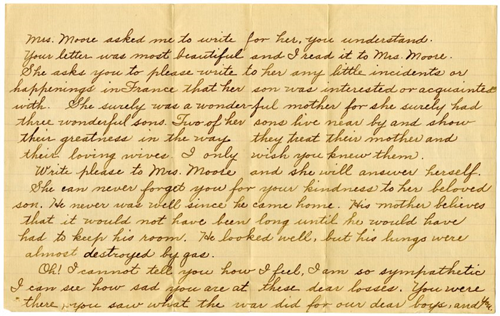 Mrs. Moore asked me to write for her, you understand.
Your letter was most beautiful and I read it to Mrs. Moore.
She asks you to please write to her any little incidents or
happenings in France that her son was interested or acquainted
with. She surely was a wonderful mother for she surely had
three wonderful sons. Two of her sons live near by and show
their greatness in the way they treat their mother and
their loving wives I only wish you knew them.
Write please to Mrs. Moore and she will answer herself.
She can never forget you for your kindness to her beloved
son. He never was well since he came home. His mother believes
that it would not have been long until he would have
had to keep his room. He looked well, but his lungs were
almost destroyed by gas.
Oh! I cannot tell you how I feel, I am so sympathetic
I can see how sad you are at these dear losses. You were
"there, you saw what the war did for our dear boys, and